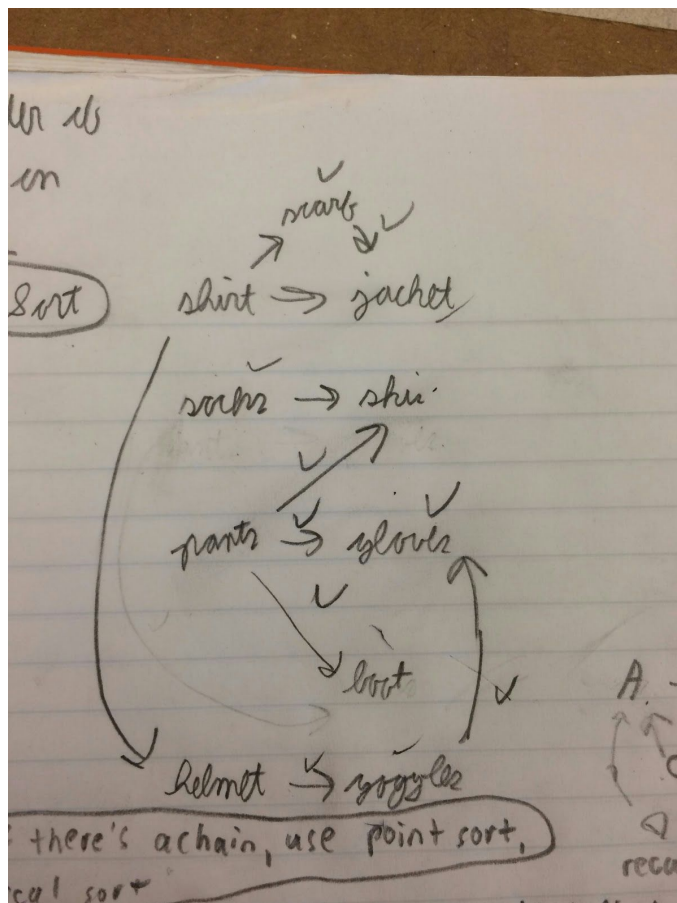 in
scarf
Sort
shirt → jacket
socks → ski
pants → gloves
boot
helmet → goggles
there's a chain, use point sort,
cal sort
A
recu